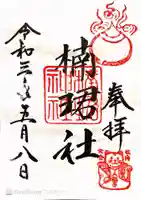 奉拝
楠珺社
令和三年五月八日